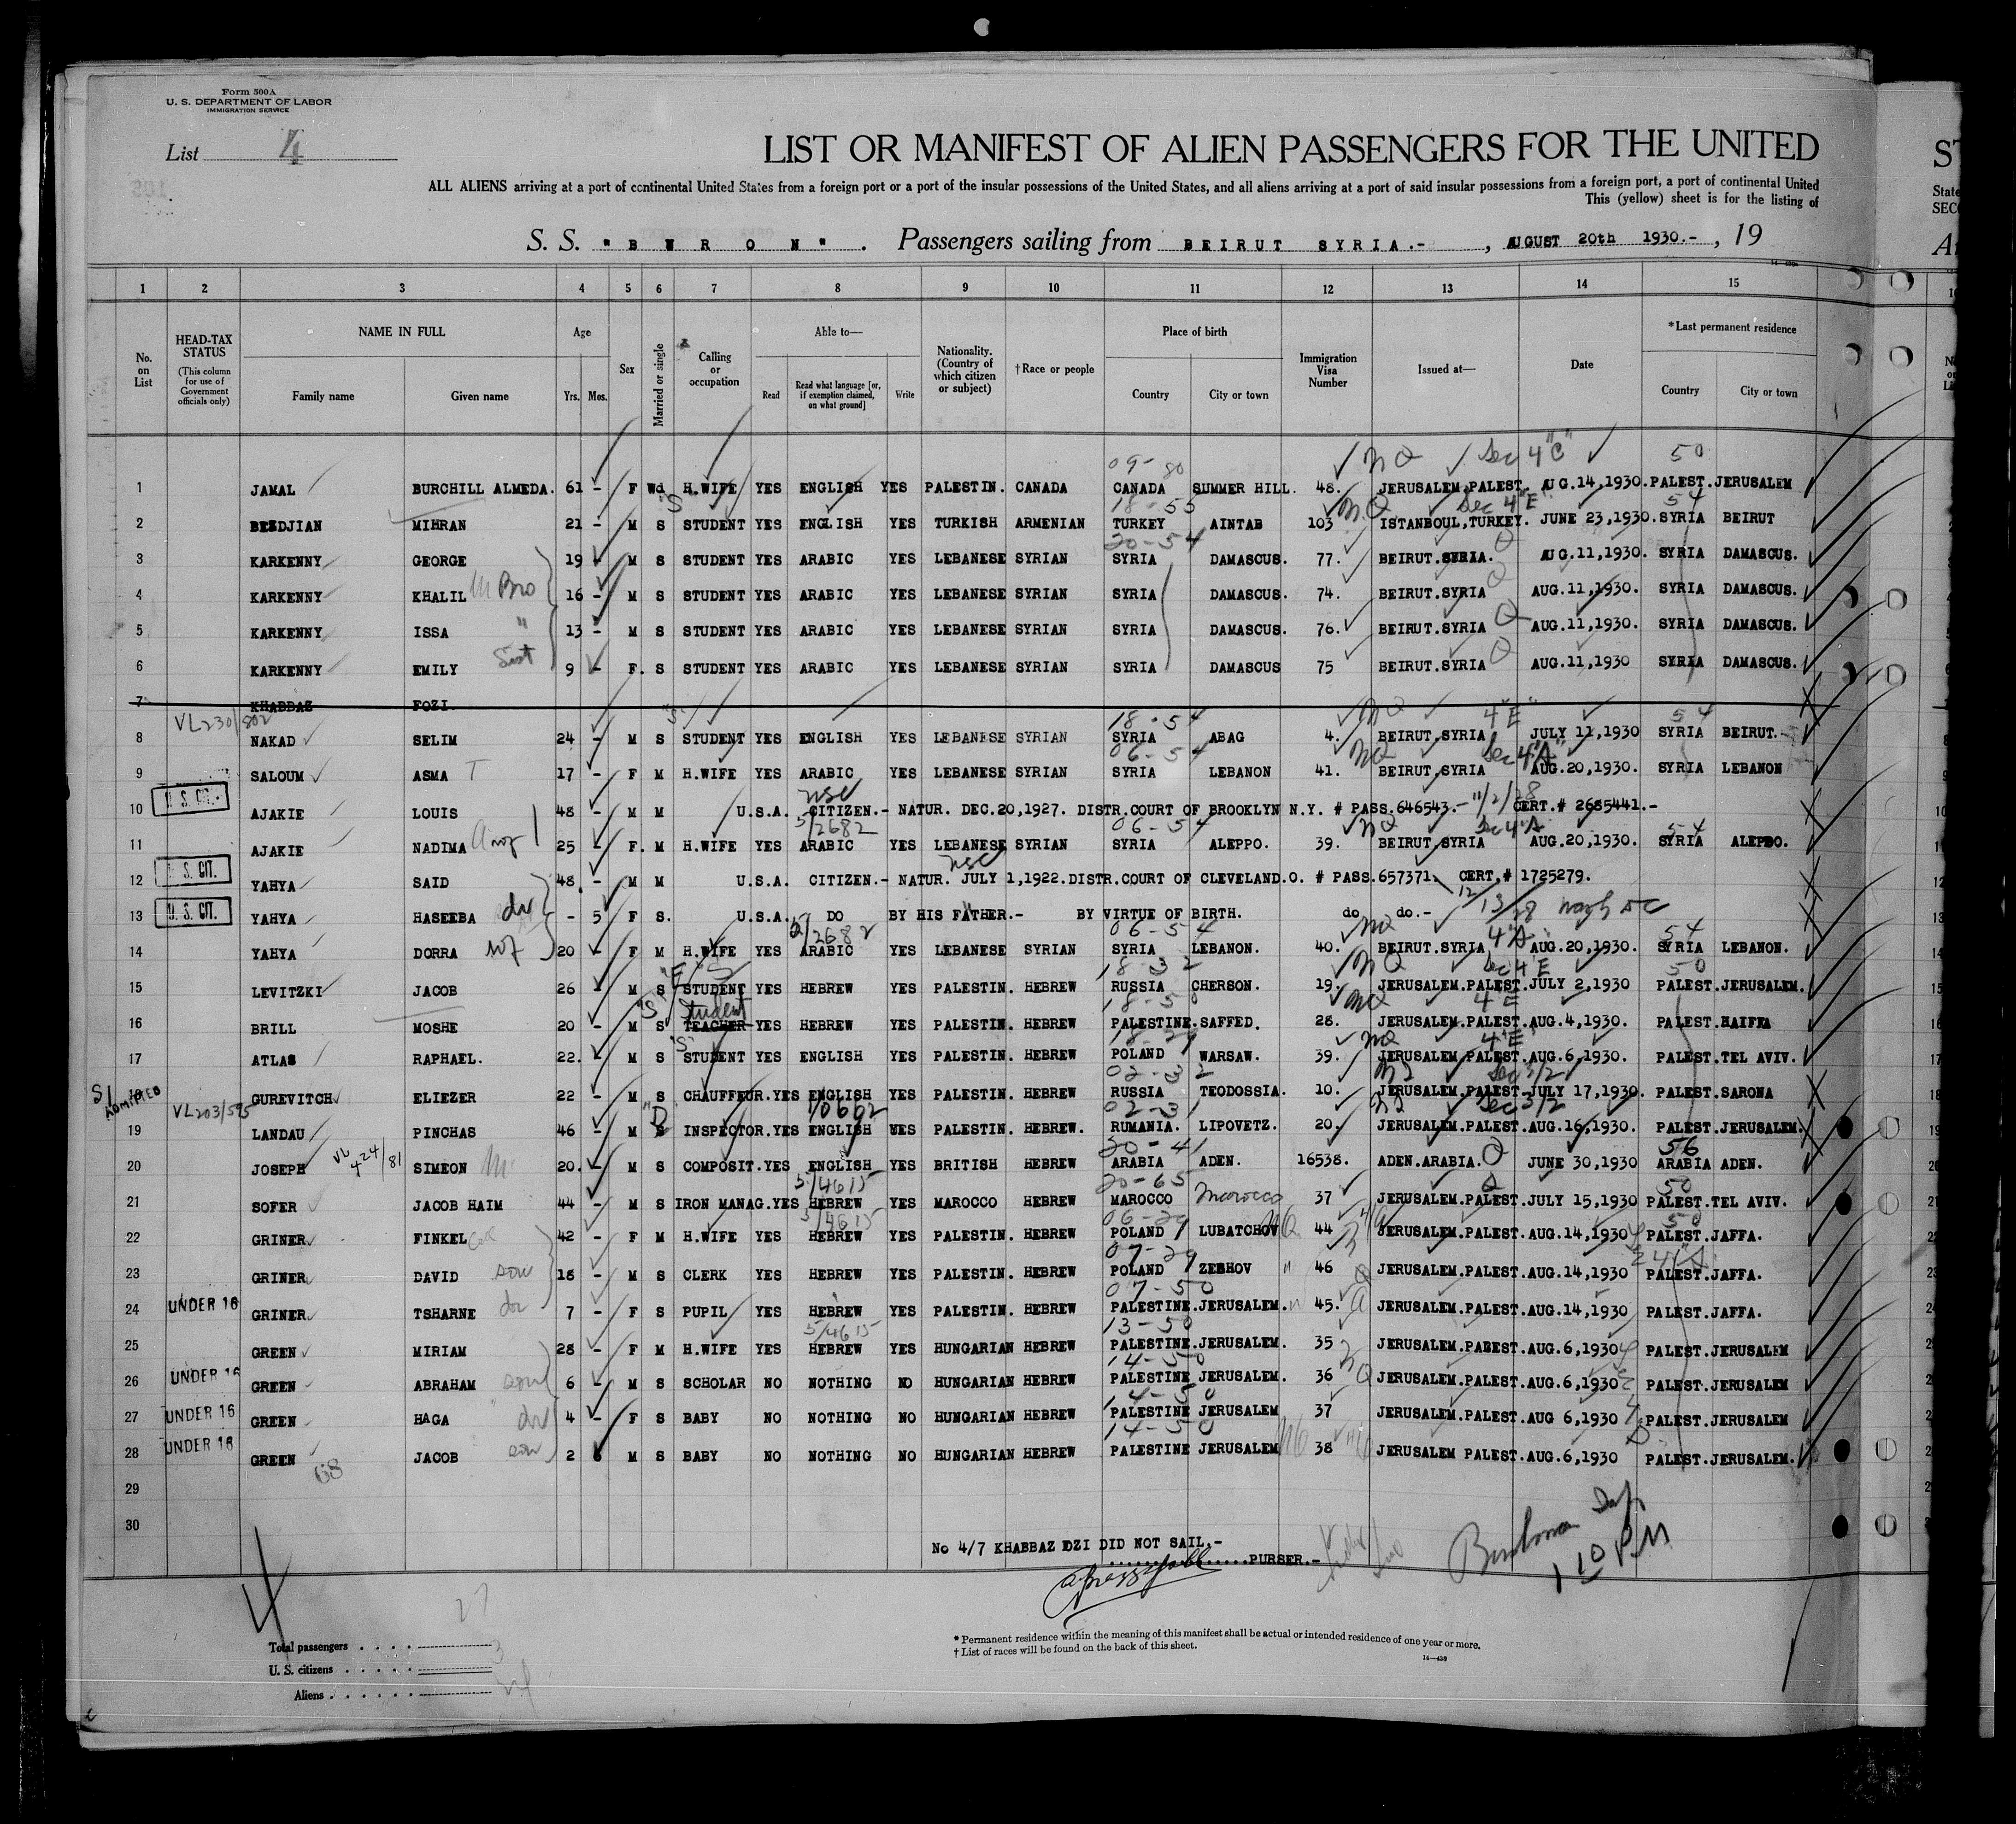 Form 500A
U. S. DEPARTMENT OF LABOR
IMMIGRATION SERVICE
List 4
LIST OR MANIFEST OF ALIEN PASSENGERS FOR THE UNITED
ALL ALIENS arriving at a port of continental United States from a foreign port or a port of the insular possessions of the United States, and all aliens arriving at a port of said insular possessions from a foreign port, a port of continental United
This (yellow) sheet is for the listing of
S. S. "BWRON". Passengers sailing from BEIRUT SYRIA.- , AUGUST 20th 1930.- , 19
1 2 3 4 5 6 7 8 9 10 11 12 13 14 15
No. on List
HEAD-TAX STATUS
(This column for use of Government officials only)
NAME IN FULL
Family name Given name
Age
Yrs. Mos.
Sex
Married or single
Calling or occupation
Able to—
Read Read what language [or, if exemption claimed, on what ground] Write
Nationality. (Country of which citizen or subject)
†Race or people
Place of birth
Country City or town
Immigration Visa Number
Issued at—
Date
*Last permanent residence
Country City or town
09-80 NQ Sec 4 "C" 50
1 JAMAL BURCHILL ALMEDA. 61 - F Wd H.WIFE YES ENGLISH YES PALESTIN. CANADA CANADA SUMMER HILL. 48. JERUSALEM.PALEST. AUG.14,1930. PALEST.JERUSALEM
"S" 18-55 NQ Sec 4 "E" 54
2 BEZDJIAN MIHRAN 21 - M S STUDENT YES ENGLISH YES TURKISH ARMENIAN TURKEY AINTAB 103 ISTANBOUL,TURKEY. JUNE 23,1930. SYRIA BEIRUT
20-54 Q
3 KARKENNY GEORGE 19 - M S STUDENT YES ARABIC YES LEBANESE SYRIAN SYRIA DAMASCUS. 77. BEIRUT.SYRIA. AUG.11,1930. SYRIA DAMASCUS.
4 KARKENNY KHALIL Bro 16 - M S STUDENT YES ARABIC YES LEBANESE SYRIAN SYRIA DAMASCUS. 74. BEIRUT.SYRIA Q AUG.11,1930. SYRIA DAMASCUS.
5 KARKENNY ISSA " 13 - M S STUDENT YES ARABIC YES LEBANESE SYRIAN SYRIA DAMASCUS. 76. BEIRUT.SYRIA Q AUG.11,1930. SYRIA DAMASCUS.
6 KARKENNY EMILY Sist 9 - F. S STUDENT YES ARABIC YES LEBANESE SYRIAN SYRIA DAMASCUS 75 BEIRUT.SYRIA Q AUG.11,1930 SYRIA DAMASCUS.
7 KHABBAZ FOZI
VL230/802 "S" 18-54 NQ 4"E" 54
8 NAKAD SELIM 24 - M S STUDENT YES ENGLISH YES LEBANESE SYRIAN SYRIA ABAG 4. BEIRUT.SYRIA JULY 11,1930 SYRIA BEIRUT.
06-54 NQ Sec 4"A"
9 SALOUM ASMA T 17 - F M H.WIFE YES ARABIC YES LEBANESE SYRIAN SYRIA LEBANON 41. BEIRUT.SYRIA AUG.20,1930. SYRIA LEBANON
U. S. CIT. USC 11/2/28
10 AJAKIE LOUIS 48 - M M U.S.A. CITIZEN.- NATUR. DEC.20,1927. DISTR.COURT OF BROOKLYN N.Y. # PASS.646543.- CERT.# 2685441.-
5/2682 06-54 NQ Sec 4"A" 54
11 AJAKIE NADIMA 25 - F. M H.WIFE YES ARABIC YES LEBANESE SYRIAN SYRIA ALEPPO. 39. BEIRUT.SYRIA AUG.20,1930. SYRIA ALEPPO.
U. S. CIT. USC
12 YAHYA SAID 48. - M M U.S.A. CITIZEN.- NATUR. JULY 1,1922.DISTR.COURT OF CLEVELAND.O. # PASS.657371. CERT.# 1725279.
U. S. CIT. 12/13/28 Wash DC
13 YAHYA HASEEBA - 5 F S. U.S.A. DO BY HIS FATHER.- BY VIRTUE OF BIRTH. do do.-
5/2682 06-54 NQ 4"A" 54
14 YAHYA DORRA 20 - F M H.WIFE YES ARABIC YES LEBANESE SYRIAN SYRIA LEBANON. 40. BEIRUT.SYRIA AUG.20,1930. SYRIA LEBANON.
18-32 NQ Sec 4 E 50
15 LEVITZKI JACOB 26 - M S STUDENT YES HEBREW YES PALESTIN. HEBREW RUSSIA CHERSON. 19. JERUSALEM.PALEST. JULY 2,1930 PALEST.JERUSALEM.
"S" Student 18-50 NQ 4 E
16 BRILL MOSHE 20 - M S TEACHER YES HEBREW YES PALESTIN. HEBREW PALESTINE.SAFFED. 28. JERUSALEM.PALEST. AUG.4,1930. PALEST.HAIFFA
"S" 18-29 NQ 4"E"
17 ATLAS RAPHAEL. 22. - M S STUDENT YES ENGLISH YES PALESTIN. HEBREW POLAND WARSAW. 39. JERUSALEM.PALEST. AUG.6,1930. PALEST.TEL AVIV.
SI ADMITTED 02-32 Sec 3/2
18 GUREVITCH ELIEZER 22 - M S CHAUFFEUR.YES ENGLISH YES PALESTIN. HEBREW RUSSIA TEODOSSIA. 10. JERUSALEM.PALEST. JULY 17,1930. PALEST.SARONA
VL203/595 "D" 02-31 Sec 3/2
19 LANDAU PINCHAS 46 - M S INSPECTOR.YES ENGLISH YES PALESTIN. HEBREW. RUMANIA. LIPOVETZ. 20. JERUSALEM.PALEST. AUG.16,1930. PALEST.JERUSALEM.
VL 424/81 20-41 56
20 JOSEPH SIMEON 20. - M S COMPOSIT.YES ENGLISH YES BRITISH HEBREW ARABIA ADEN. 16538. ADEN.ARABIA. Q JUNE 30,1930 ARABIA ADEN.
5/4615 20-65 Q 50
21 SOFER JACOB HAIM 44 - M S IRON MANAG.YES HEBREW YES MAROCCO HEBREW MAROCCO Marocco 37 JERUSALEM.PALEST. JULY 15,1930 PALEST.TEL AVIV.
5/4615 06-29 50
22 GRINER FINKEL 42 - F M H.WIFE YES HEBREW YES PALESTIN. HEBREW POLAND LUBATCHOV 44 JERUSALEM.PALEST. AUG.14,1930 PALEST.JAFFA.
07-29
23 GRINER DAVID son 18 - M S CLERK YES HEBREW YES PALESTIN. HEBREW POLAND ZESHOV 46 JERUSALEM.PALEST. AUG.14,1930 PALEST.JAFFA.
UNDER 16 07-50
24 GRINER TSHARNE 7 - F S PUPIL YES HEBREW YES PALESTIN. HEBREW PALESTINE.JERUSALEM. 45. JERUSALEM.PALEST. AUG.14,1930 PALEST.JAFFA.
5/4615 13-50
25 GREEN MIRIAM 28 - F M H.WIFE YES HEBREW YES HUNGARIAN HEBREW PALESTINE.JERUSALEM. 35 JERUSALEM.PALEST. AUG.6,1930 PALEST.JERUSALEM
UNDER 16 14-50
26 GREEN ABRAHAM son 6 - M S SCHOLAR NO NOTHING NO HUNGARIAN HEBREW PALESTINE.JERUSALEM. 36 JERUSALEM.PALEST. AUG.6,1930 PALEST.JERUSALEM
UNDER 16 14-50
27 GREEN HAGA 4 - F S BABY NO NOTHING NO HUNGARIAN HEBREW PALESTINE JERUSALEM 37 JERUSALEM.PALEST. AUG 6,1930 PALEST.JERUSALEM
UNDER 16 14-50
28 GREEN JACOB son 2 M S BABY NO NOTHING NO HUNGARIAN HEBREW PALESTINE JERUSALEM 38 JERUSALEM PALEST. AUG.6,1930 PALEST.JERUSALEM.
68
29
30
No 4/7 KHABBAZ OZI DID NOT SAIL.-
..........PURSER.-
1 10 PM
4
27
Total passengers
U. S. citizens 3
Aliens
* Permanent residence within the meaning of this manifest shall be actual or intended residence of one year or more.
† List of races will be found on the back of this sheet.
14—430